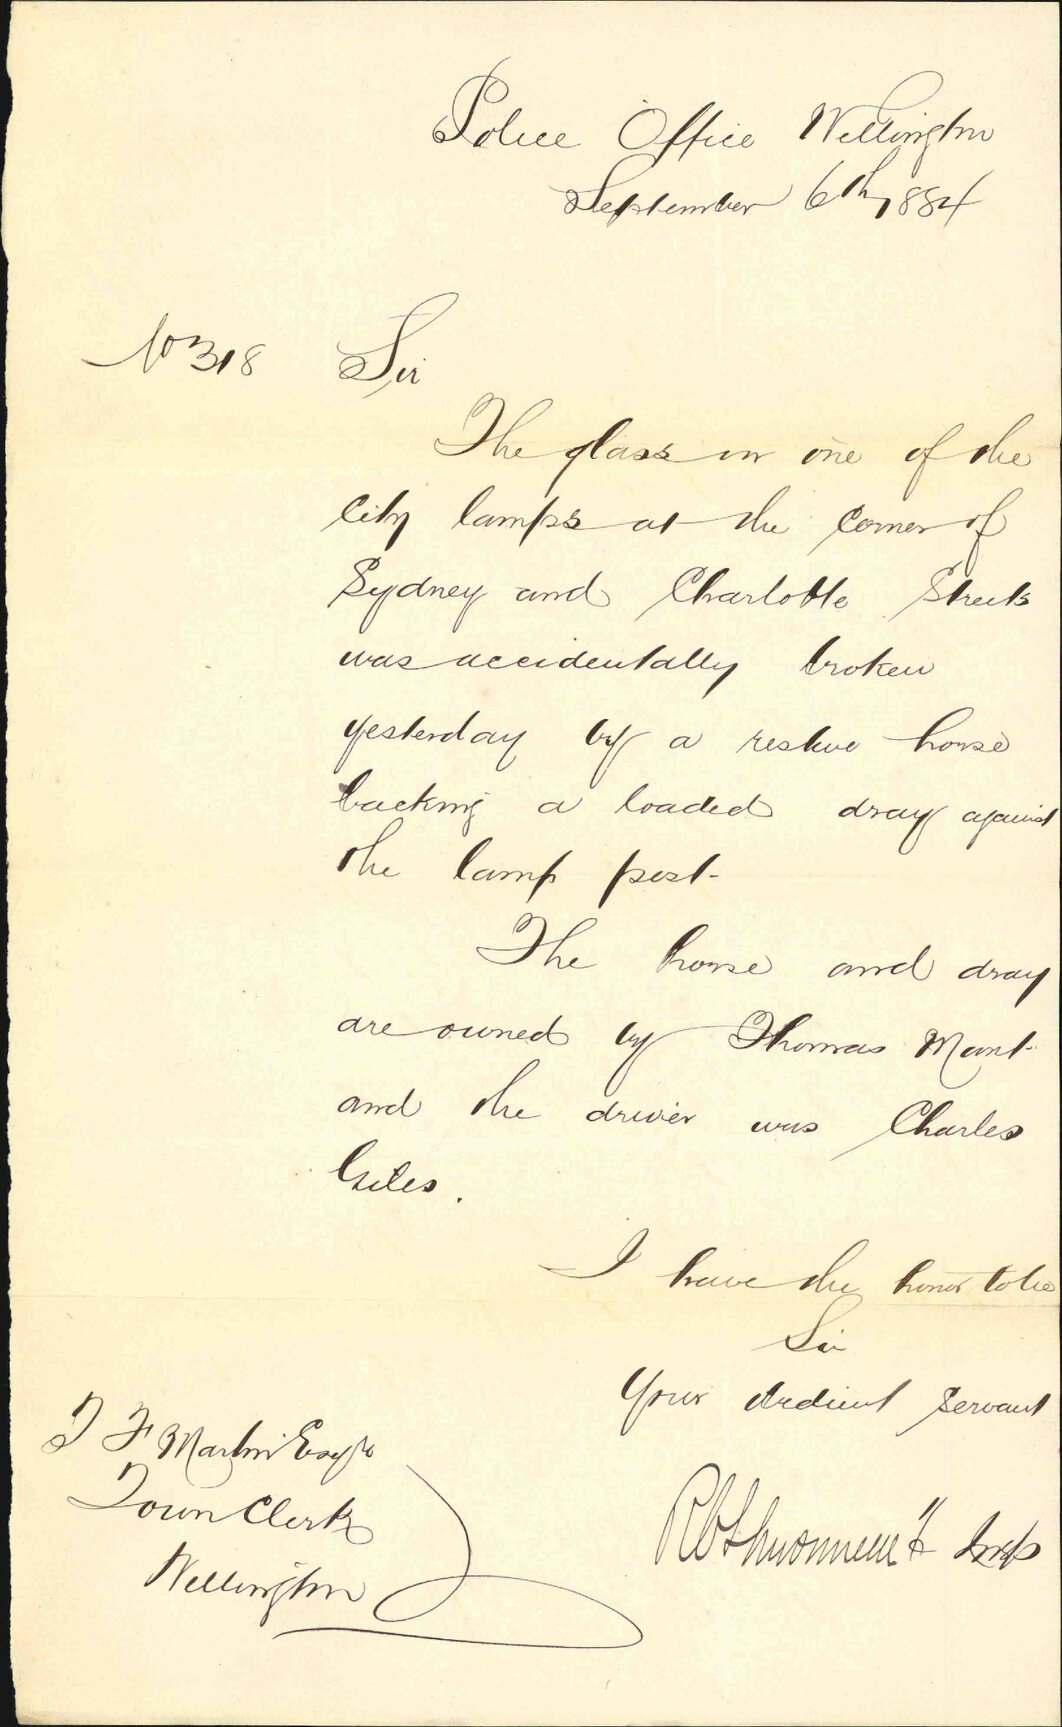 Police Office Wellington
September 6th 1884
No 318 Sir
The glass in one of the
City lamps at the corner of
Sydney and Charlotte Streets
was accidentally broken
yesterday by a restive horse
backing a loaded dray against
the lamp post-
The horse and dray
are owned by Thomas Mant
and the driver was Charles
Giles.
I have the honor to be
Sir
Your obedient servant
T F Martin Esqre
Town Clerk
Wellington
Insp